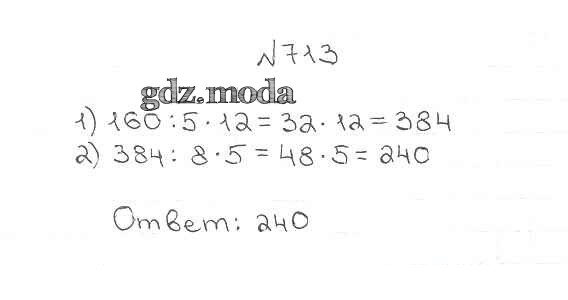 N713
gdz.moda
1) 160 : 5 · 12 = 32 · 12 = 384
2) 384 : 8 · 5 = 48 · 5 = 240
Ответ: 240